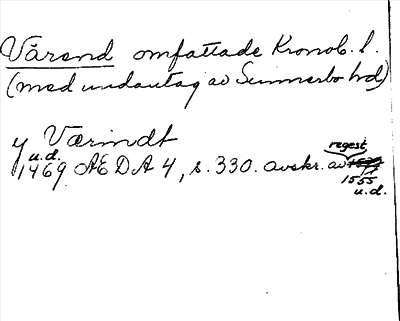 Värend omfattade Kronob. l.
(med undantag av Sunnerbo hd)
y Værindt
u.d.
1469 AEDA 4, s. 330. avskr. av regest
1555
u.d.